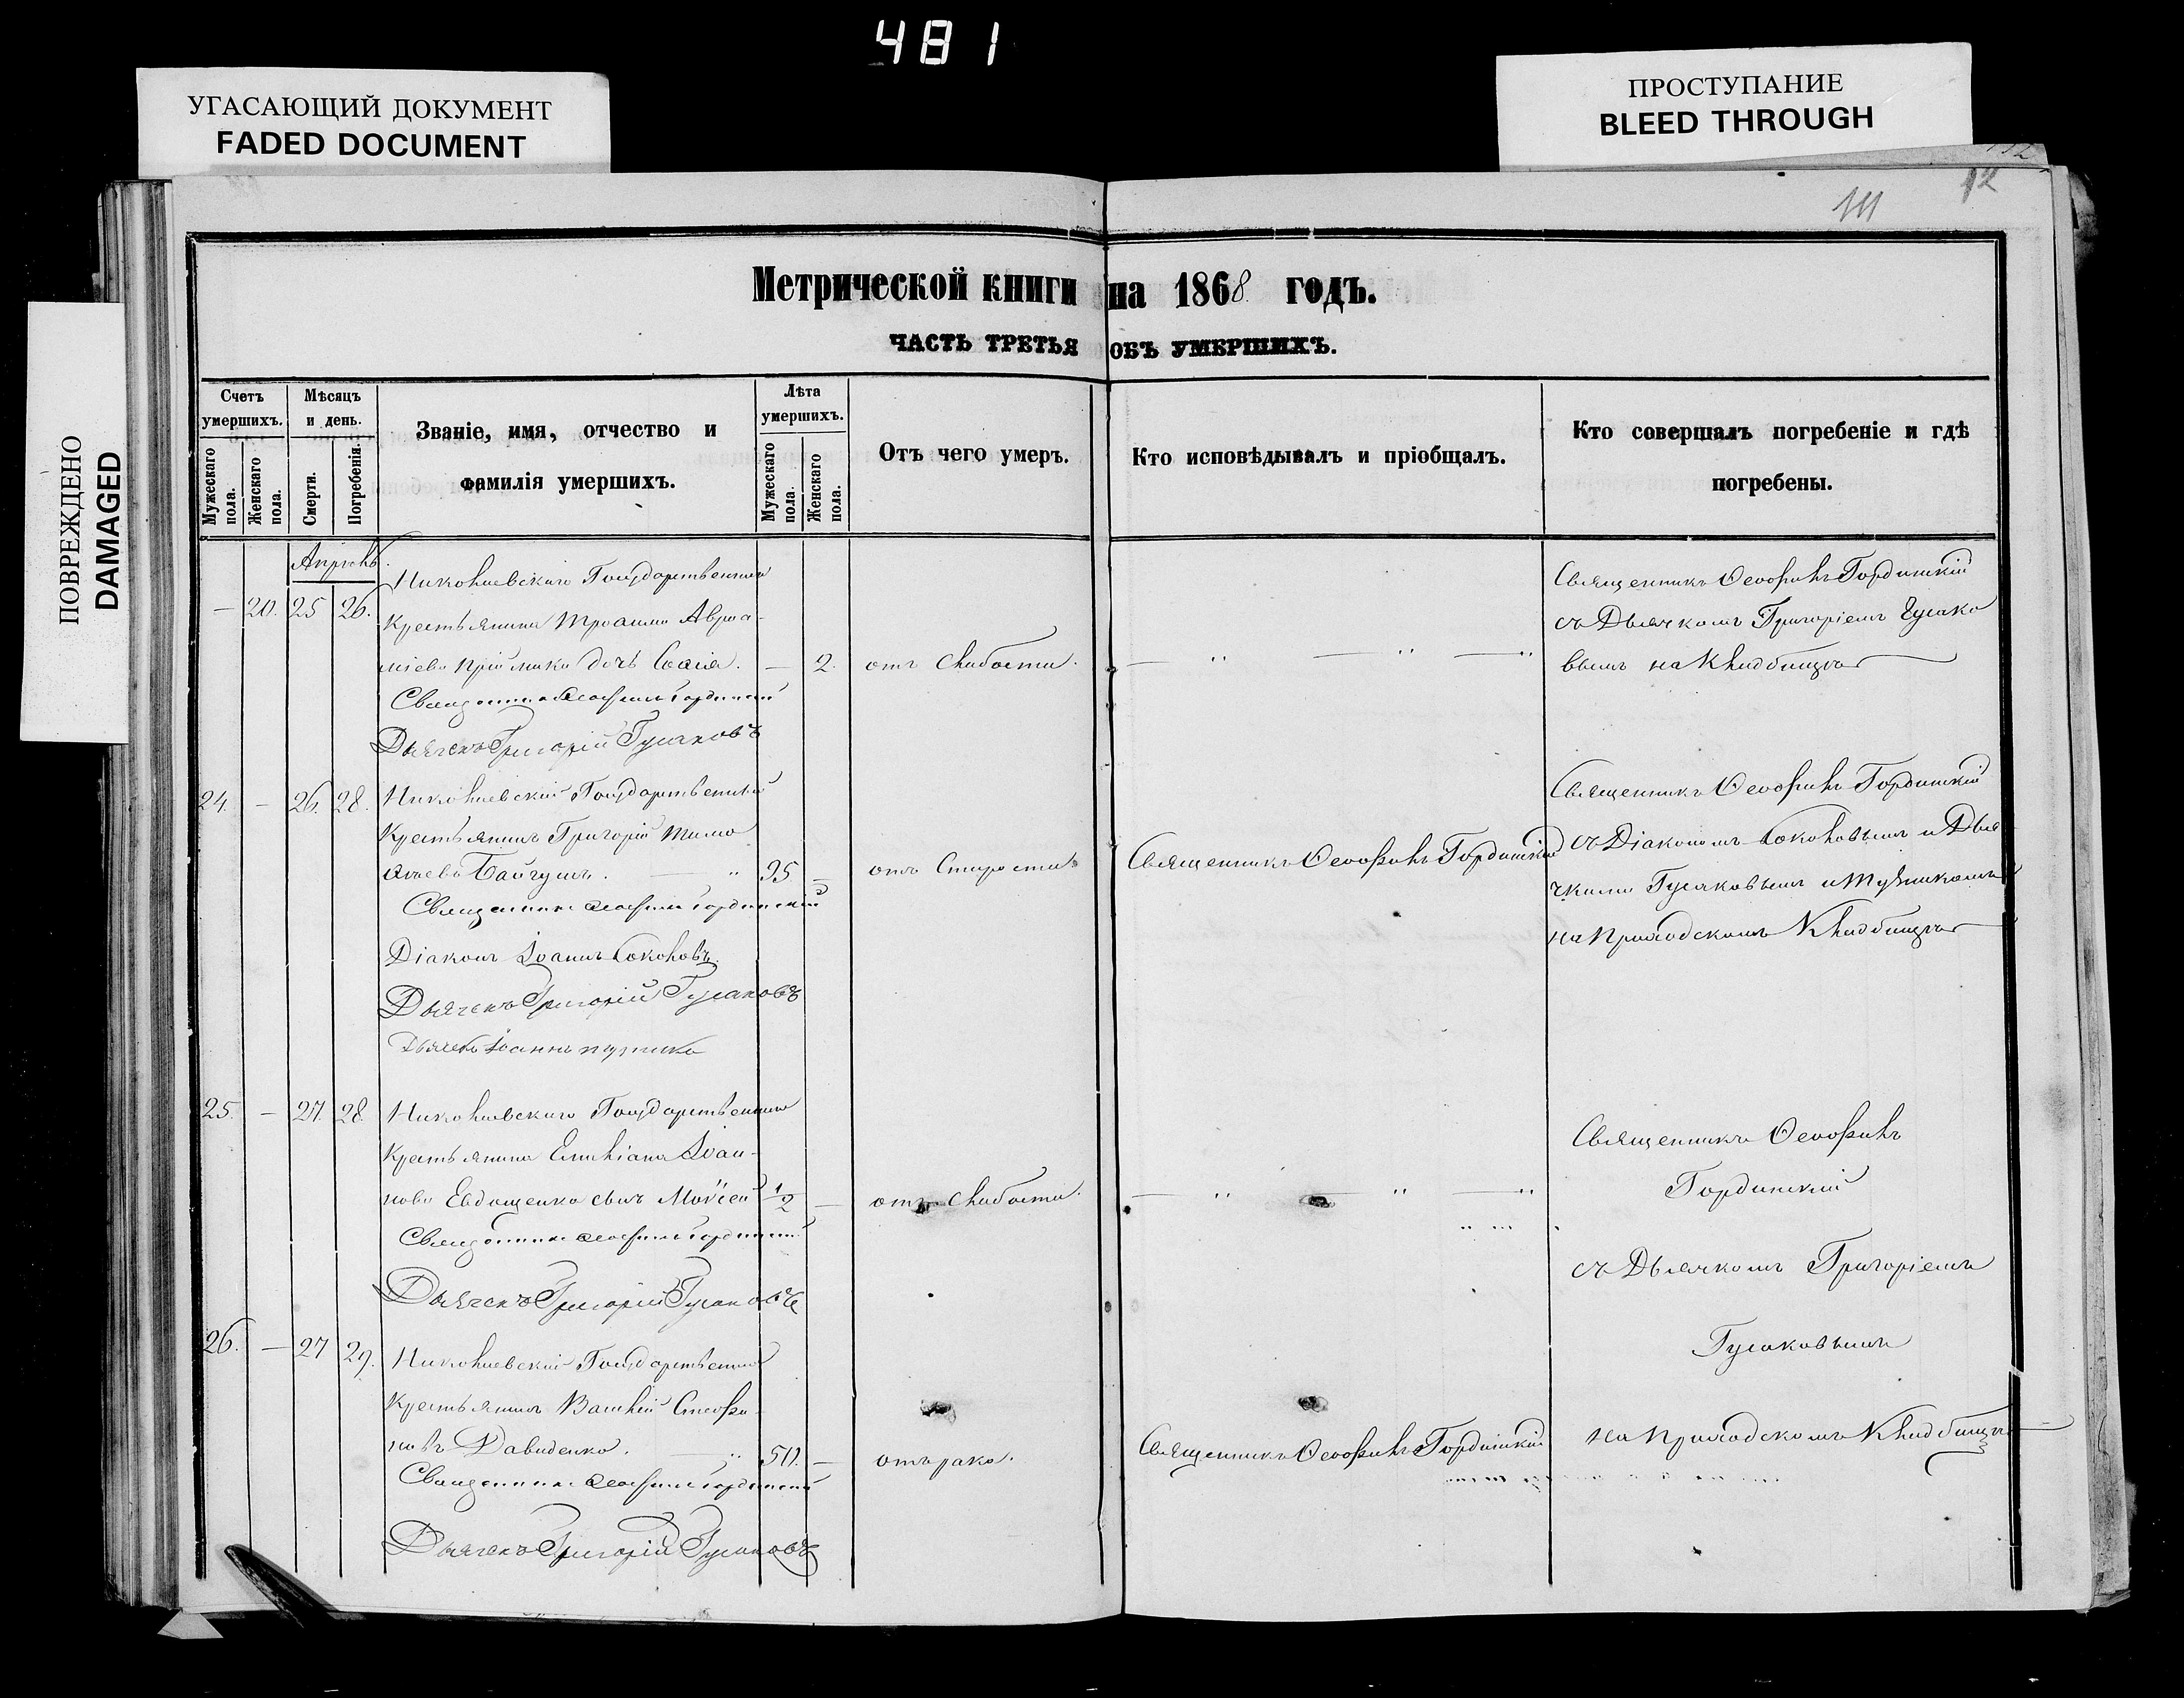 481
УГАСАЮЩИЙ ДОКУМЕНТ
FADED DOCUMENT
ПРОСТУПАНИЕ
BLEED THROUGH
ПОВРЕЖДЕНО
DAMAGED
111
12
Метрической книги на 1868 годъ.
ЧАСТЬ ТРЕТЬЯ ОБЪ УМЕРШИХЪ.
Счетъ умершихъ.
Мужескаго пола.
Женскаго пола.
Мѣсяцъ и день.
Смерти.
Погребенія.
Званіе, имя, отчество и
фамилія умершихъ.
Лѣта умершихъ.
Мужескаго пола.
Женскаго пола.
Отъ чего умеръ.
Кто исповѣдывалъ и пріобщалъ.
Кто совершалъ погребеніе и гдѣ
погребены.
Апрель.
— 20. 25 26.
Николаевскаго Государственнаго
Крестьянина Трофима Авраа-
міева дочь Софія. — 2. отъ слабости.
Священникъ Ѳеофилъ Гординскій
Дьячекъ Григорій Гусаковъ
Священникъ Ѳеофилъ Гординскій
съ Дьячкомъ Григоріемъ Гусако
вымъ на Кладбищѣ
24. — 26. 28.
Николаевскій Государственный
Крестьянинъ Григорій Тимо
ѳеевъ 95 — отъ Старости
Священникъ Ѳеофилъ Гординскій
Діаконъ Іоаннъ Соколовъ.
Дьячекъ Григорій Гусаковъ
Дьячекъ Іоаннъ
Священникъ Ѳеофилъ Гординскій
Священникъ Ѳеофилъ Гординскій
съ Діакономъ Соколовымъ и Дья
чками Гусаковымъ и
на Приходскомъ Кладбищѣ
25. — 27. 28.
Николаевскаго Государственнаго
Крестьянина Емиліана Іоан-
нова Евдощенка сынъ Мойсей 1/2 — отъ слабости.
Священникъ Ѳеофилъ Гординскій
Дьячекъ Григорій Гусаковъ
Священникъ Ѳеофилъ
Гординскій
съ Дьячкомъ Григоріемъ
Гусаковымъ
26. — 27 29.
Николаевскій Государственный
Крестьянинъ Василій Стефа
новъ Давиденко. 50. — отъ рака.
Священникъ Ѳеофилъ Гординскій
Дьячекъ Григорій Гусаковъ
Священникъ Ѳеофилъ Гординскій
на Приходскомъ Кладбищѣ